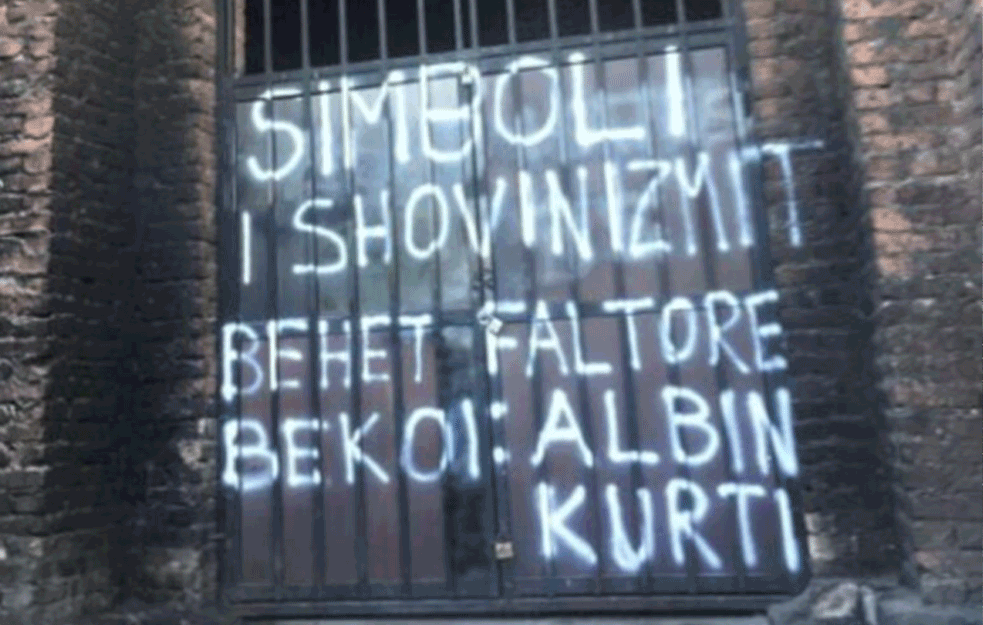 SIMBOLI
I SHOVINIZMIT
BEHET FALTORE
BEKOI: ALBIN
KURTI